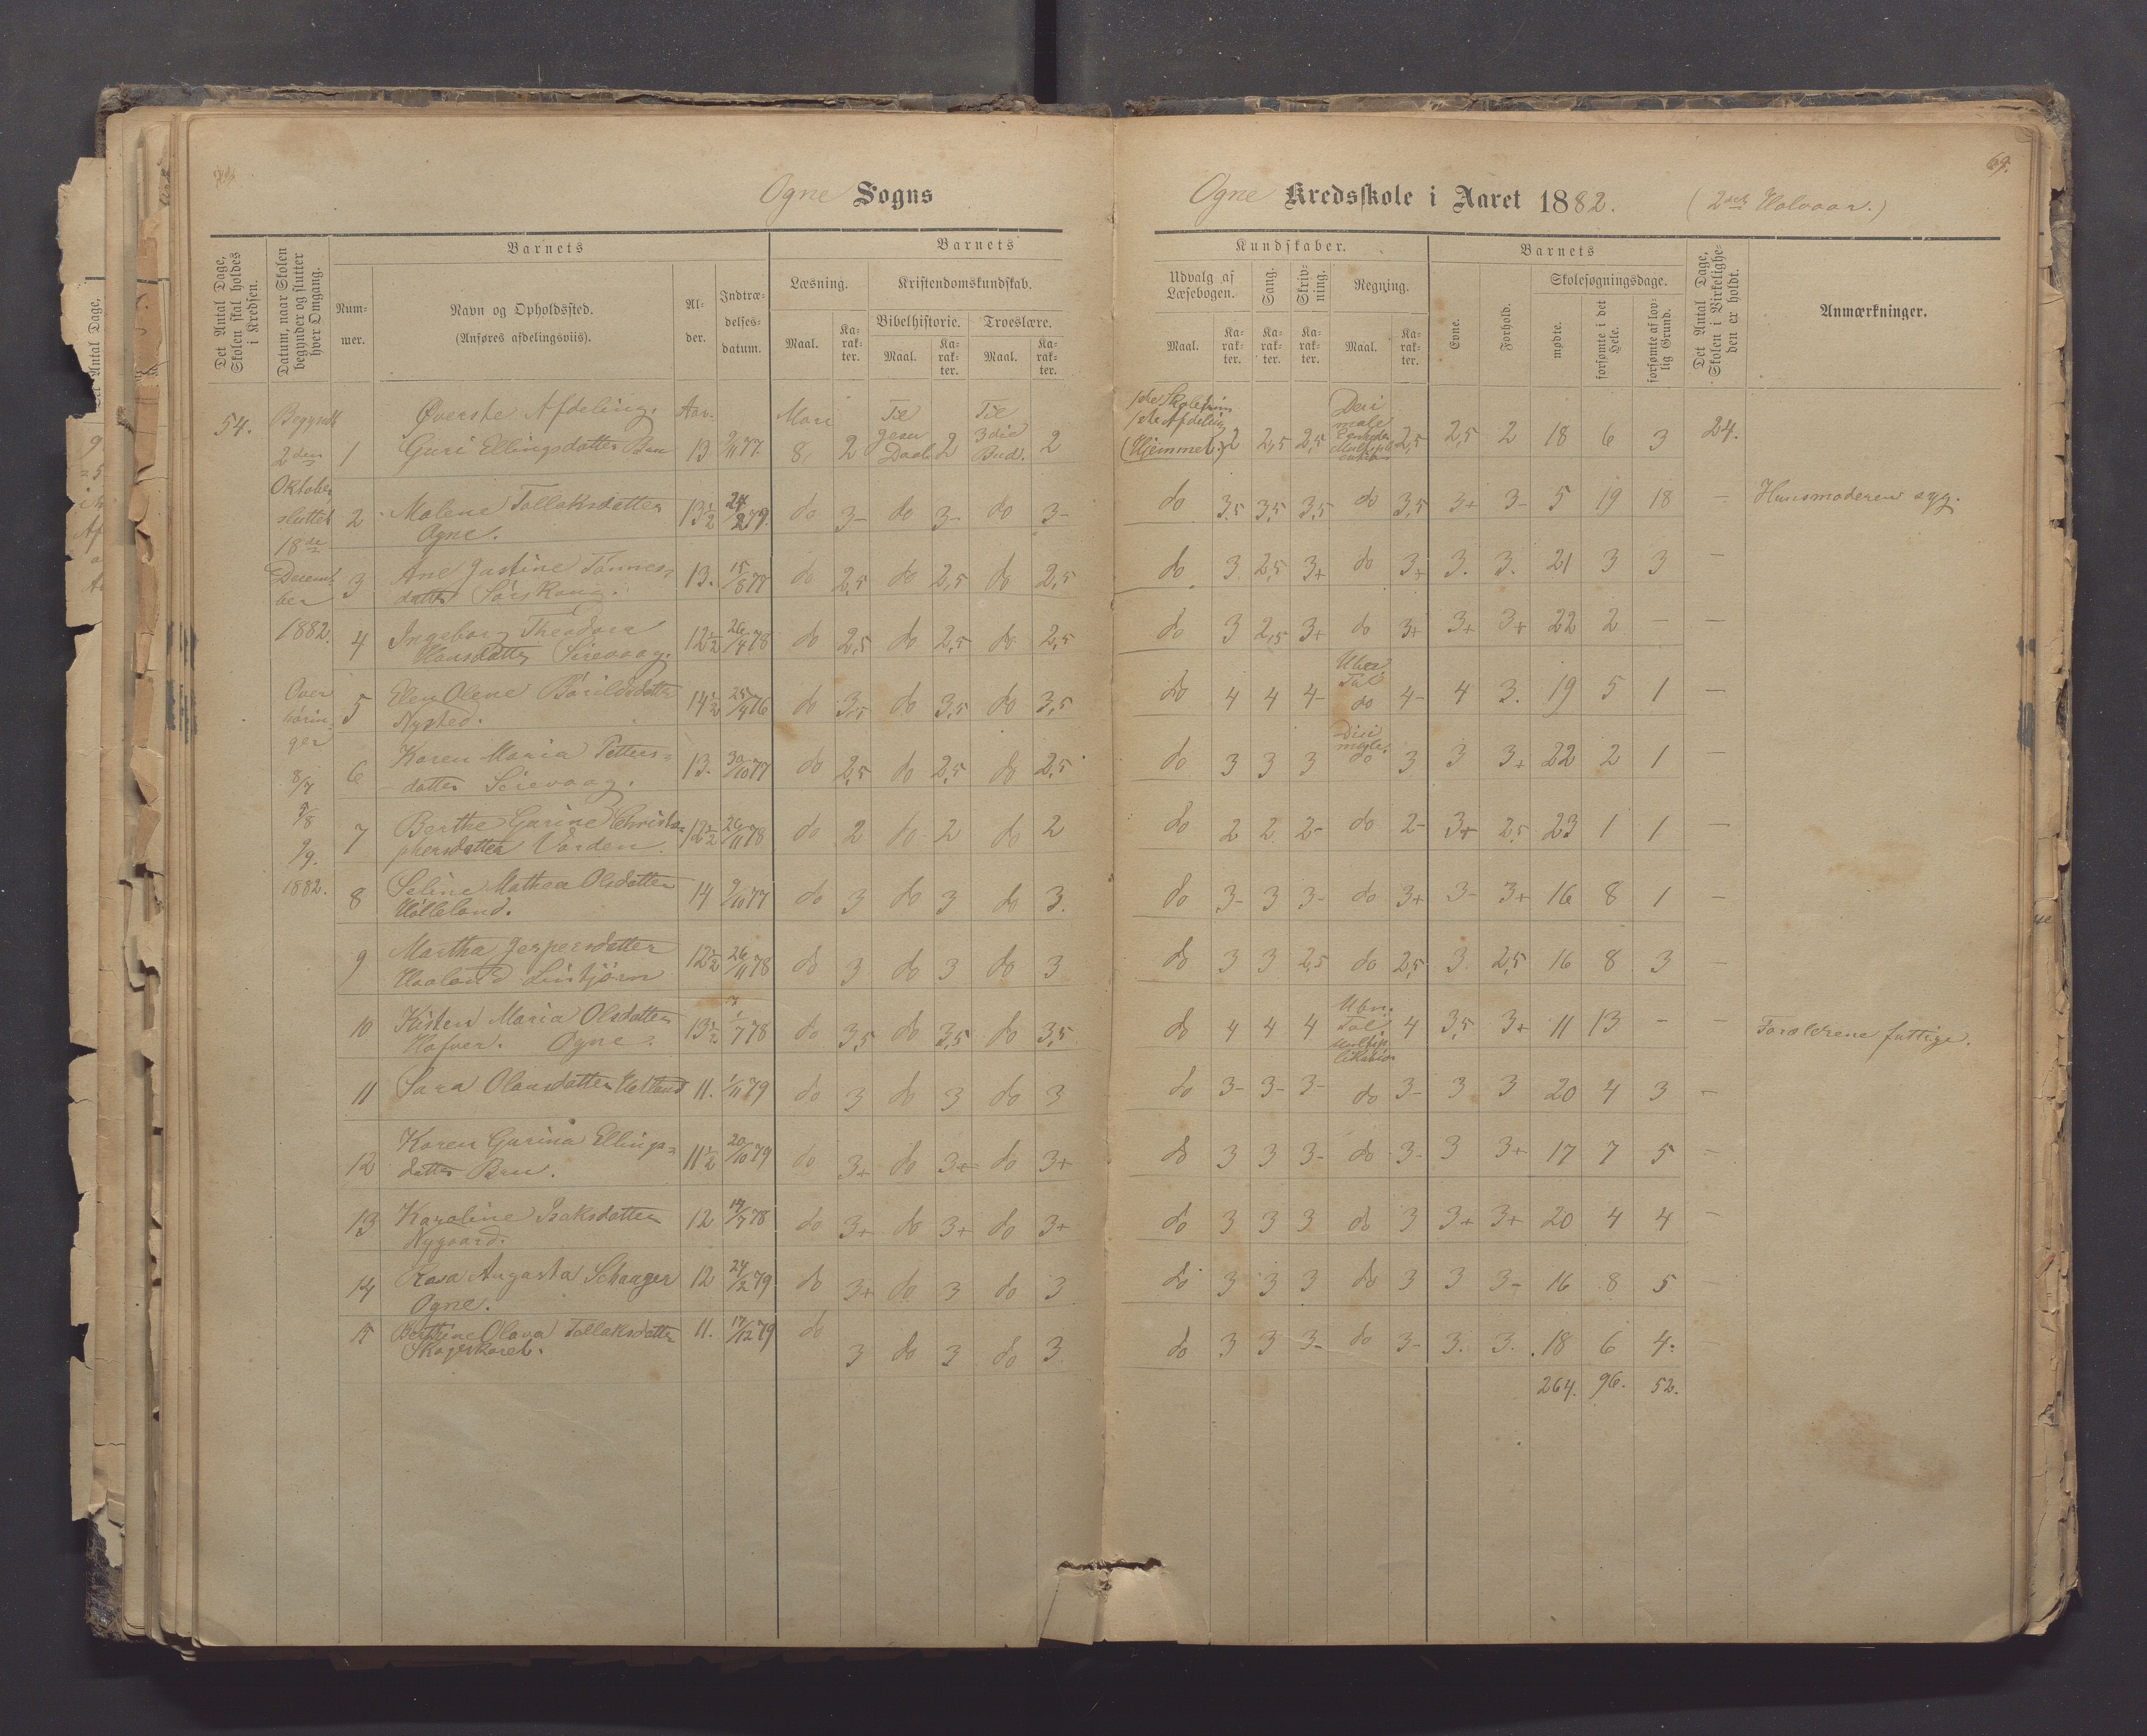 69.
Ogne Sogns
Ogne Kredsskole i Aaret 1882. (2det Halvaar.)
Det Antal Dage, Skolen skal holdes i Kredsen.
Datum, naar Skolen begynder og slutter hver Omgang.
Barnets
Num-
mer.
Navn og Opholdssted.
(Anføres afdelingsviis).
Al-
der.
Indtræ-
delses-
datum.
Barnets
Læsning.
Maal.
Ka-
rak-
ter.
Kristendomskundskab.
Bibelhistorie.
Maal.
Ka-
rak-
ter.
Troeslære.
Maal.
Ka-
rak-
ter.
Kundskaber.
Udvalg af
Læsebogen.
Maal.
Ka-
rak-
ter.
Sang.
Ka-
rak-
ter.
Skriv-
ning.
Ka-
rak-
ter.
Regning.
Maal.
Ka-
rak-
ter.
Barnets
Evne.
Forhold.
Skolesøgningsdage.
mødte.
forsømte i det Hele.
forsømte af lov-
lig Grund.
Det Antal Dage, Skolen i Virkelighe-
den er holdt.
Anmærkninger.
54.
Begyndt
2den
Oktober
sluttet
18de
Decem
ber
1882.
Over
hørin
ger
8/7
9/8
9/9.
1882.
Øverste Afdeling. Aar.
1 Guri Ellingsdatter Bru 13 9/11 77. 8 2 Til Jesu Daab 2 Til 3die Bud. 2
2 Malene Tollaksdatter 13½ 24/2 79. do 3- do 3- do 3-
Ogne.
3 Ane Justine Tønnes= 13. 15/8 77 do 2,5 do 2,5 do 2,5
datter
4 Ingeborg Theodora 12½ 26/4 78 do 2,5 do 2,5 do 2,5
Hansdatter Sirevaag.
5 Elen Olene Bårildsdatter 14½ 25/4 76 do 3,5 do 3,5 do 3,5
Nysted.
6 Karen Maria Petters= 13. 30/10 77 do 2,5 do 2,5 do 2,5
datter Sirevaag.
7 Berthe Gurine Christo= 12½ 26/11 78 do 2 do 2 do 2
phersdatter Varden.
8 Seline Mathea Olsdatter 14 9/10 77 do 3 do 3 do 3.
Hølleland.
9 Martha Jespersdatter 12½ 26/11 78 do 3 do 3 do 3
Haaland
10 Kisten Maria Olsdatter 13½ 1/7 78 do 3,5 do 3,5 do 3,5
Hafver. Ogne.
11 Sara Olausdatter Hetland 11. 1/11 79 do 3 do 3 do 3
12 Karen Gurina Ellings= 11½ 20/10 79 do 3+ do 3+ do 3+
datter Bru.
13 Karoline Isaksdatter 12 14/7 78 do 3+ do 3+ do 3+
Nygaard.
14 Rosa Augusta Schaager 12 24/2 79. do 3+ do 3 do 3
Ogne.
15 Berthine Olava Tollaksdatter 11. 17/12 79 do 3 do 3 do 3
1ste Skoletrin
1ste Afdeling
(Hjemmet.) 2 2,5 2,5 2,5 2,5 2 18 6 3 24.
do 3,5 3,5 3,5 do 3,5 3+ 3- 5 19 18 — Huusmoderen syg.
do 3 2,5 3+ do 3+ 3. 3. 21 3 3 —
do 3 2,5 3+ do 3+ 3+ 3+ 22 2 — —
do 4 4 4- Uben. Tal do 4- 4 3. 19 5 1 —
do 3 3 3 do 3 3 3+ 22 2 1 —
do 2 2 2- do 2- 3+ 2,5 23 1 1 —
do 3- 3 3- do 3+ 3- 3+ 16 8 1 —
do 3 3 2,5 do 2,5 3 2,5 16 8 3 —
do 4 4 4 Uben. Tal Multip likation 4 3,5 3+ 11 13 - — Forældrene fattige.
do 3- 3- 3- do 3- 3 3 20 4 3 —
do 3 3 3- do 3- 3 3+ 17 7 5 —
do 3 3 3 do 3 3+ 3+ 20 4 4 —
do 3 3 3 do 3 3 3- 16 8 5 —
do 3 3 3- do 3- 3. 3. 18 6 4.
264. 96. 52.